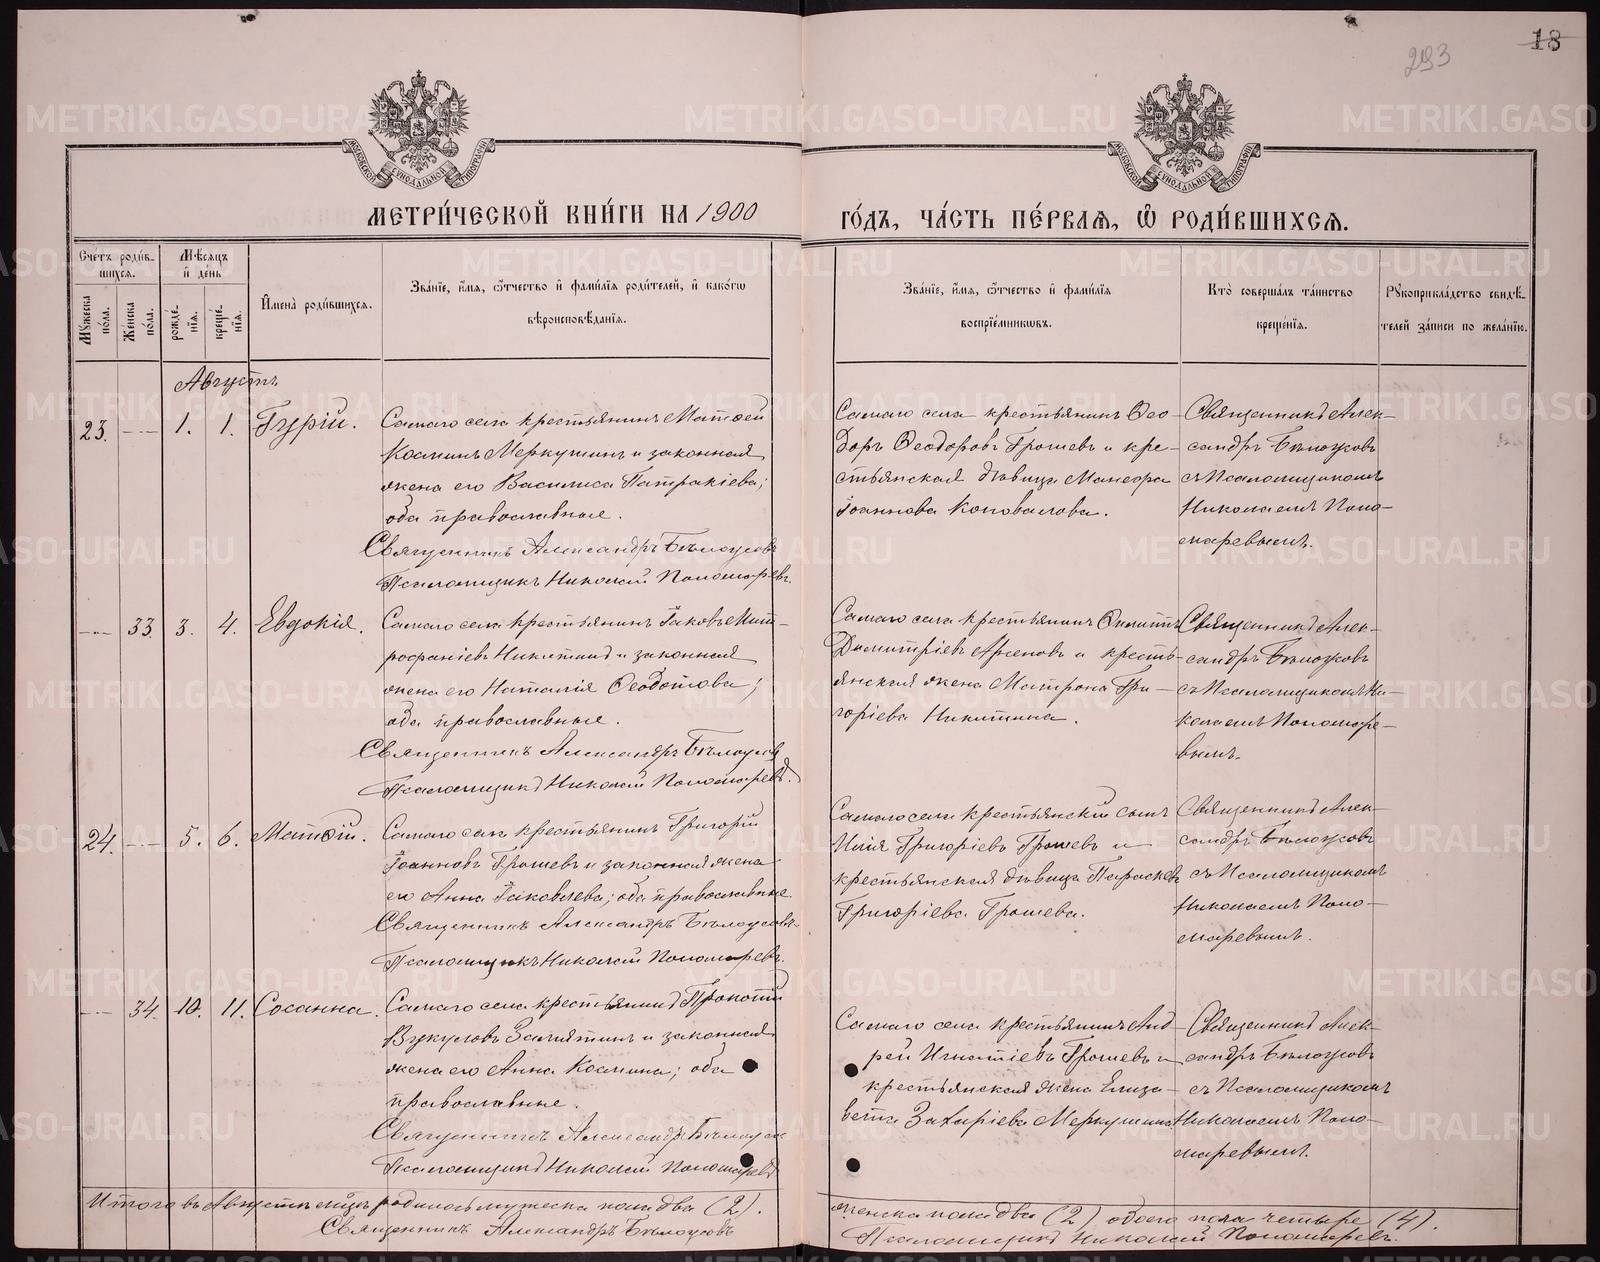 18
293
МЕТРИ́ЧЕСКОЙ КНИ́ГИ НА 1900
ГО́ДЪ, ЧА́СТЬ ПЕ́РВАѦ, Ѽ РОДИ́ВШИХСѦ.
Сче́тъ роди́в-
шихсѧ.
Мѣ́сѧцъ
и҆ де́нь
Мꙋ́жеска по́ла.
Же́нска по́ла.
рожде́-
нїѧ.
креще́-
нїѧ.
И҆мена̀ роди́вшихсѧ.
Зва́нїе, и҆́мѧ, ѻ҆́тчество и҆ фами́лїѧ роди́телей, и҆ како́гѡ
вѣроисповѣ́данїѧ.
Зва́нїе, и҆́мѧ, ѻ҆́тчество и҆ фами́лїѧ
воспрїе́мникѡвъ.
Кто̀ соверша́лъ та́инство
креще́нїѧ.
Рꙋкоприкла́дство свидѣ́-
телей за́писи по жела́нїю.
Августъ.
23. — 1. 1. Гурій.
Самаго села крестьянинъ Матѳей
Косминъ Меркушинъ и законная
жена его Василиса Патракіева;
оба православные.
Священникъ Александръ Бѣлоусовъ
Псаломщикъ Николай Пономаревъ.
Самаго села крестьянинъ Ѳео-
доръ Ѳеодоровъ Грошевъ и кре-
стьянская дѣвица Манефа
Іоаннова Коновалова.
Священникъ Алек-
сандръ Бѣлоусовъ
съ Псаломщикомъ
Николаемъ Поно-
маревымъ.
— 33. 3. 4. Евдокія.
Самаго села крестьянинъ Іаковъ Мит-
рофаніевъ Никитинъ и законная
жена его Наталія Ѳеодотова;
оба православные.
Священникъ Александръ Бѣлоусовъ
Псаломщикъ Николай Пономаревъ.
Самаго села крестьянинъ
Димитріевъ Арсеновъ и кресть-
янская жена Матрона Гри-
горіева Никитина.
Священникъ Алек-
сандръ Бѣлоусовъ
съ Псаломщикомъ Ни-
колаемъ Пономаре-
вымъ.
24. — 5. 6. Матѳій.
Самаго села крестьянинъ Григорій
Іоанновъ Грошевъ и законная жена
его Анна Іаковлева; оба православные.
Священникъ Александръ Бѣлоусовъ
Псаломщикъ Николай Пономаревъ.
Самаго села крестьянскій сынъ
Илія Григоріевъ Грошевъ и
крестьянская дѣвица Параскева
Григоріева Грошева.
Священникъ Алек-
сандръ Бѣлоусовъ
съ Псаломщикомъ
Николаемъ Поно-
маревымъ.
— 34. 10. 11. Сосанна.
Самаго села крестьянинъ Прокопій
Вукуловъ Замятинъ и законная
жена его Анна Космина; оба
православные.
Священникъ Александръ Бѣлоусовъ
Псаломщикъ Николай Пономаревъ
Самаго села крестьянинъ Анд-
рей Игнатіевъ Грошевъ и
крестьянская жена Елиза-
вета Захаріева Меркушина.
Священникъ Алек-
сандръ Бѣлоусовъ
съ Псаломщикомъ
Николаемъ Поно-
маревымъ.
Итого въ Августѣ м-цѣ родилось мужеска пола два (2).
женска пола два (2) обоего пола четыре (4).
Священникъ Александръ Бѣлоусовъ
Псаломщикъ Николай Пономаревъ.
METRIKI.GASO-URAL.RU